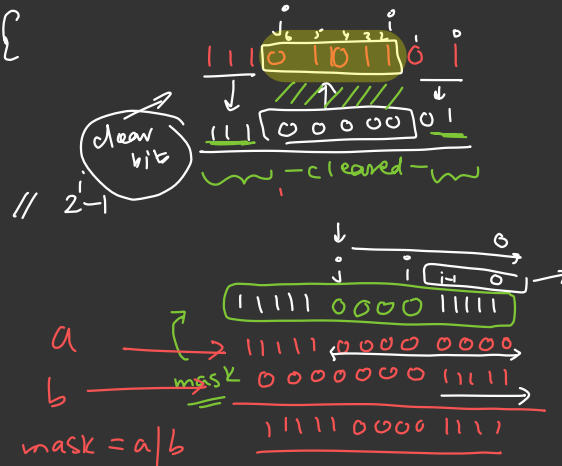 {
j i
6 5 4 3 2 1 0
1 1 1 0 1 1 0 1 1 0 1
1 1 1 0 0 0 0 0 0 1
clear bit
cleared
// 2^i-1
0
j i i-1 0
1 1 1 1 1 0 0 0 0 1 1 1 1 1
a 1 1 1 1 1 0 0 0 0 0 0 0 0
b mask 0 0 0 0 0 0 0 1 1 1 1 1
mask = a|b 1 1 1 1 1 0 0 0 0 1 1 1 1